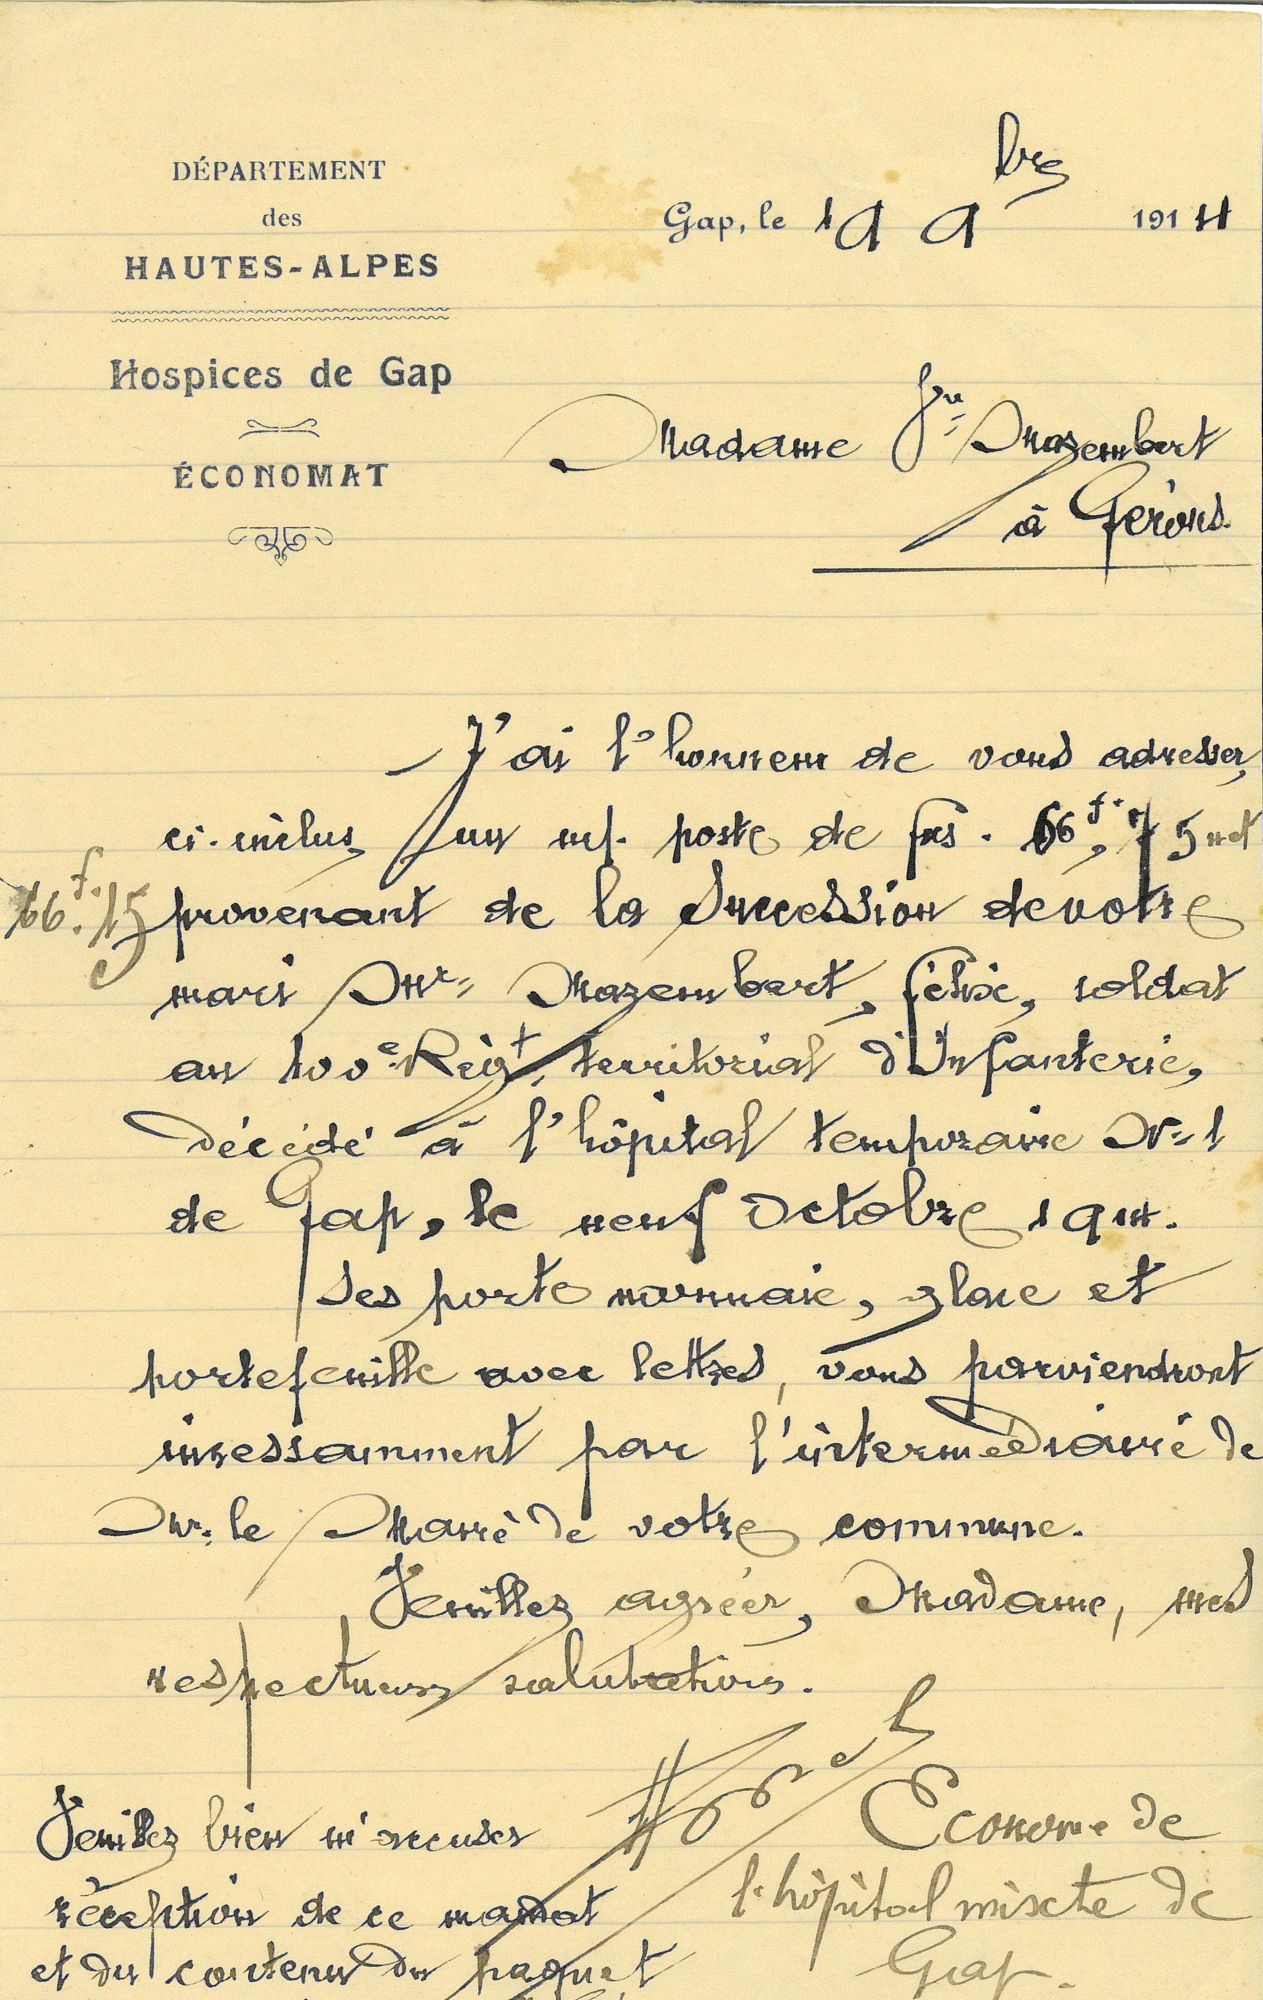 DÉPARTEMENT
des
HAUTES-ALPES
Hospices de Gap
ÉCONOMAT
Gap, le 19 9bre 1914
Madame Vve Mazembert
à
J'ai l'honneur de vous adresser,
ci-inclus, un mt. poste de frs. 66f,75 net
66f.75
provenant de la succession de votre
mari Mr Mazembert, Félix, soldat
au 100e Régt. territorial d'Infanterie,
décédé à l'hôpital temporaire No 1
de Gap, le neuf Octobre 1914.
Ses porte monnaie, glace et
portefeuille avec lettres, vous parviendront
incessamment par l'intermédiaire de
Mr. le Maire de votre commune.
Veuillez agréer, Madame, mes
respectueuses salutations.
Econome de
l'hôpital mixte de
Gap.
Veuillez bien m'accuser
réception de ce mandat
et du contenu du paquet